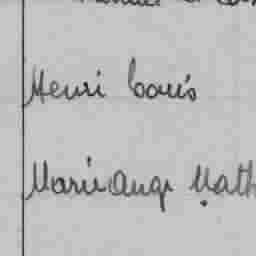 Henri Louis
Marie Ange Math